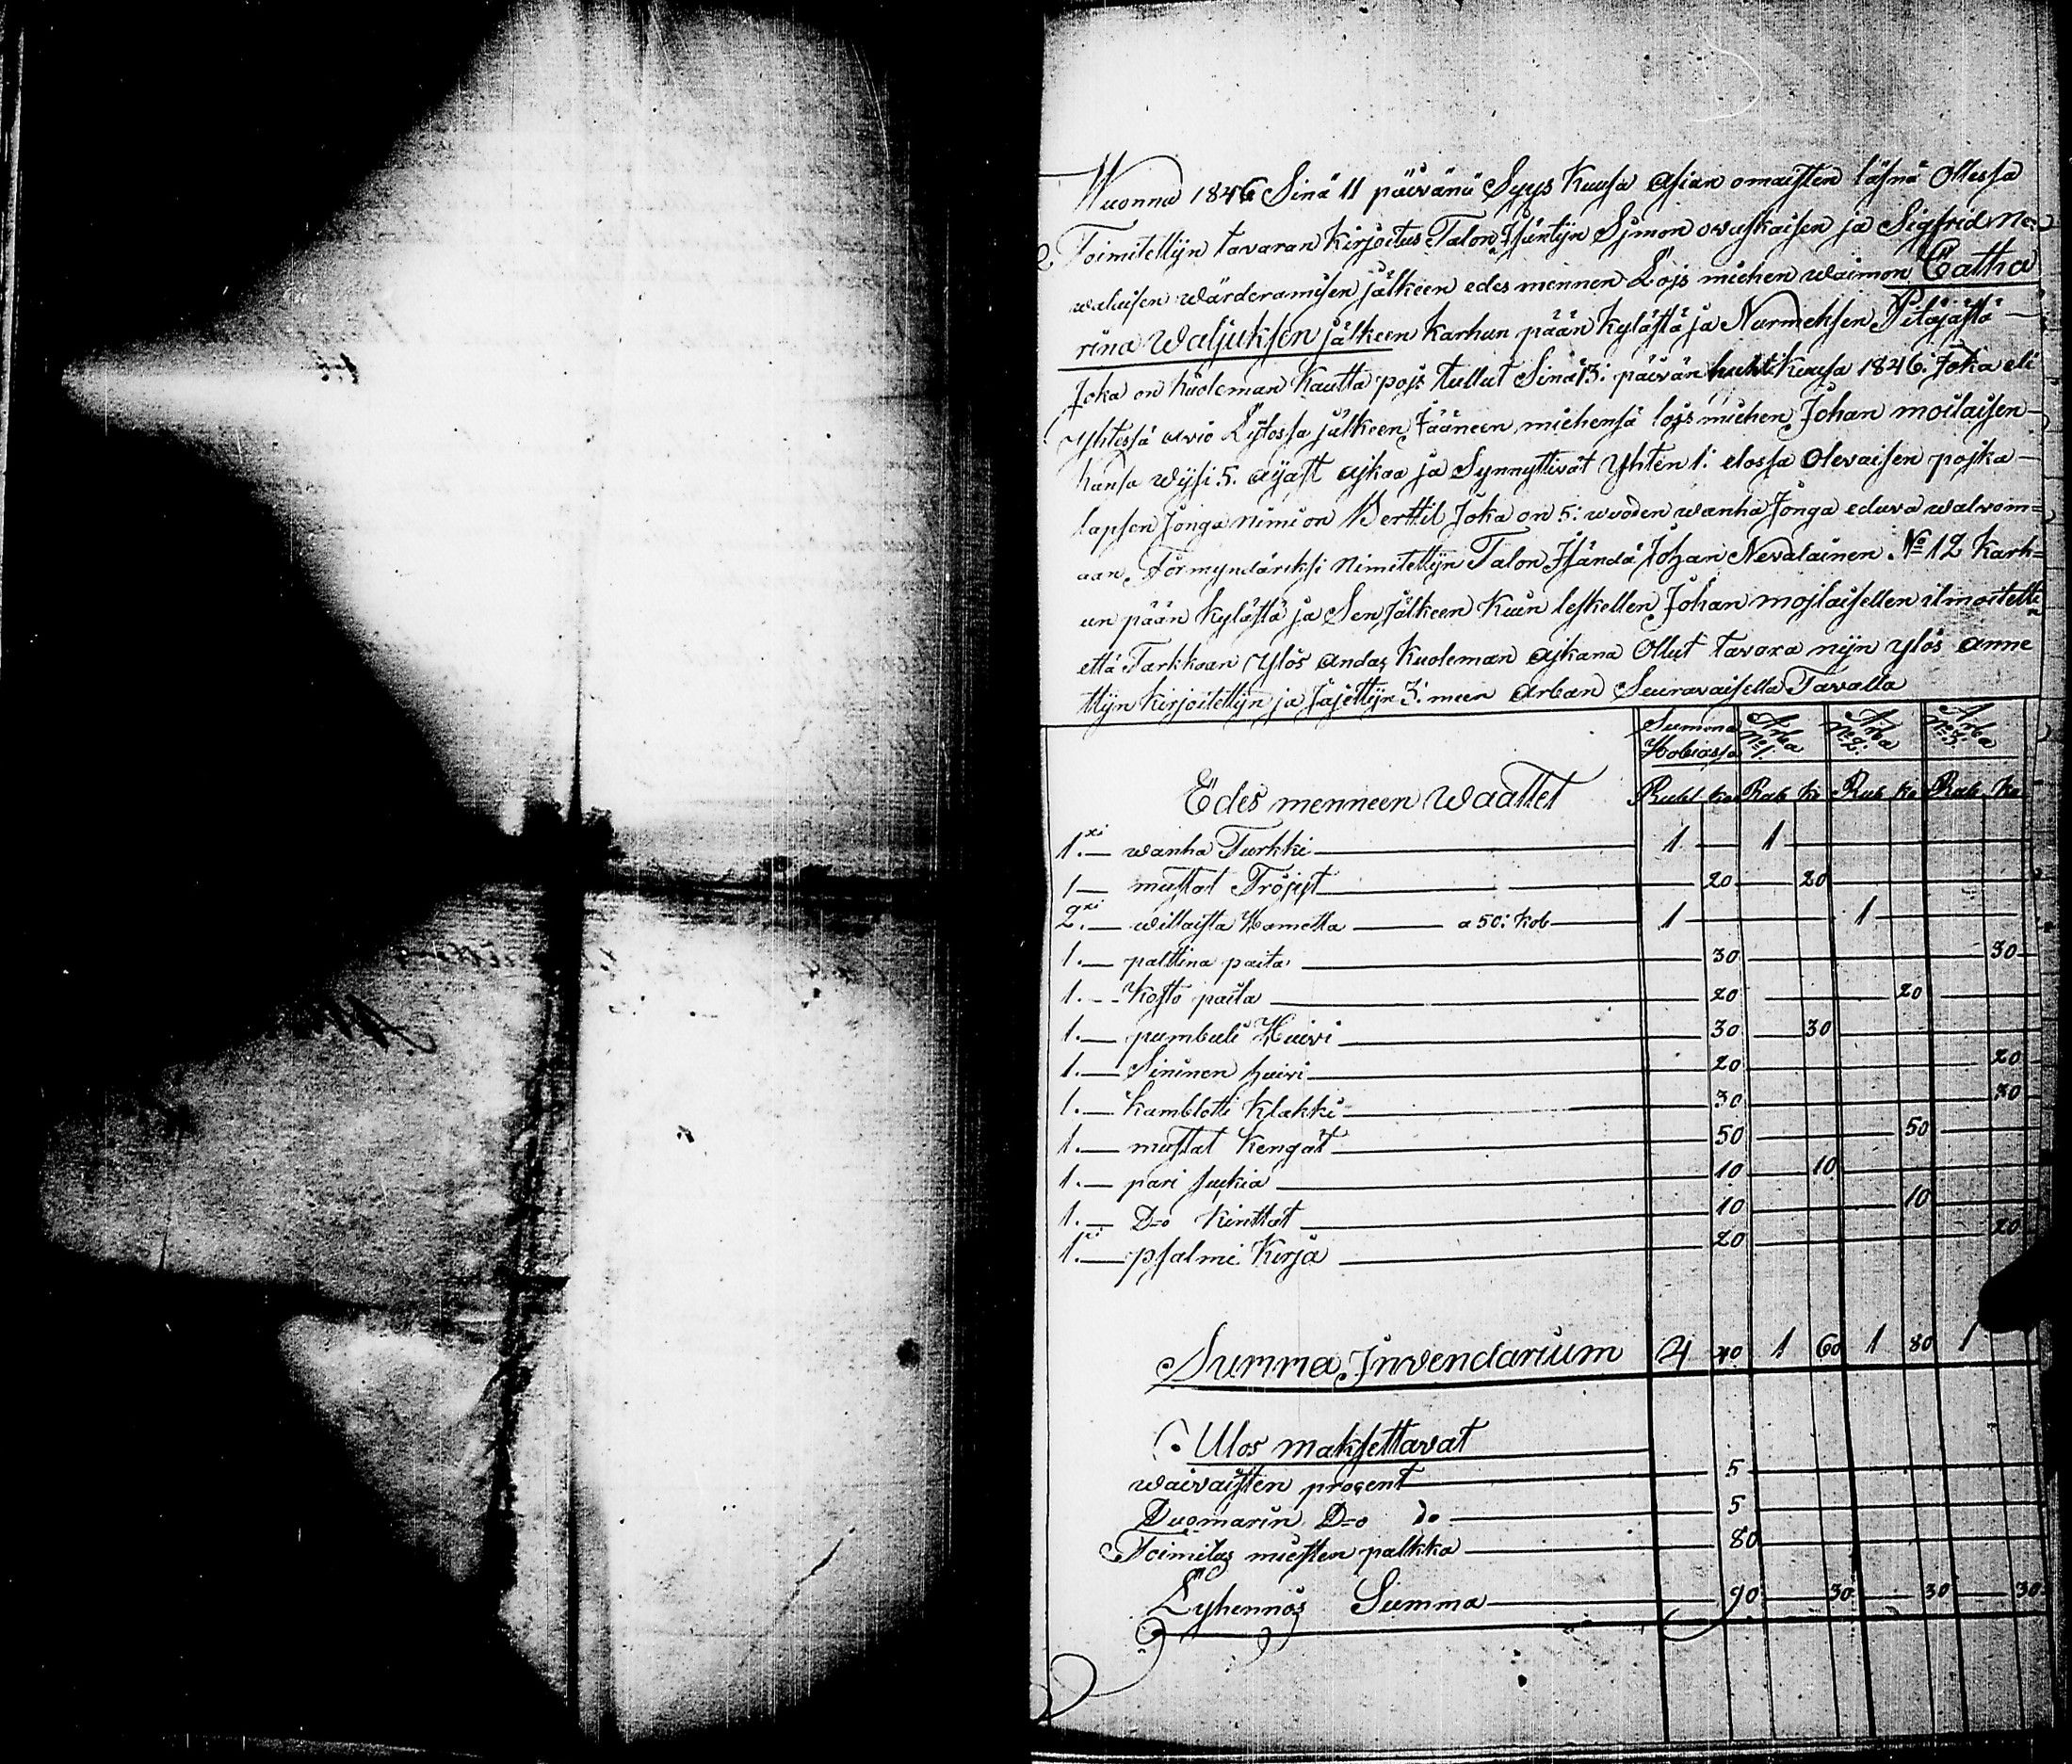 Wuonna 1846 Sinä 11 päivänä Syys kuusa asian omaisten läsnä ollessa
Toimitettijn tavaran kirjoitus Talon Isäntijn Sjmon ovaskaisen ja Sigfrid Ne-
walaisen wärderamisen jälkeen edes mennen Löjs miehen waimon Catha
rina Waljuksen jälkeen karhun pään kylästä ja Nurmeksen Pitäjästä
Joka on kuoleman kautta pojs tullut Sinä 13: päivän huhtikuusa 1846. Joka eli
Yhtessä avio Lijtossa jälkeen Jääneen miehensä lojs miehen Johan moilaisen
kansa wijsi 5. ajast ajkaa ja Synnyttivät Yhten 1: elossa olevaisen pojka
lapsen Jonga nimi on Berttil Joka on 5: wuoden wanha Jonga eduva walvom=
aan Förmyndäriksi nimitettijn Talon Isändä Johan Nevalainen No 12 Karh=
un pään kylästä ja Sen Jälkeen kuin leskellen Johan mojlaisellen ilmoitetti
että Tarkkaan Ylös andaz kuoleman ajkana ollut tavara nijn ylös anne
ttijn kirjoitettijn ja Jajettijn 3: meen arban Seuravaisella Tavalla
Summa Hobiassa Arba No 1. Arba No 2. Arba No 3.
Edes menneen waattet Rubl ko Rub ko Rub ko Rub ko
1.xi — wanha Turkki — 1. — 1
1 — mustat Tröjyt — 20 — 20
2.xi — willaista Hametta — a 50: kob — 1 — 1
1. — palttina paita — 30 — 30
1. — Kosto paita — 20 — 20
1. — pumbuli Huivi — 30 — 30
1. — Sininen huivi — 20 — 20
1. — kamblotti klakki — 30 — 30
1. — mustat kengät — 50 — 50
1. — pari sukia — 10 — 10
1. — D=o kinttat — 10 — 10
1. — psalmi kirja — 20 — 20
Summa Invendarium 4 40 1 60 1 80 1
Ulos maksettavat
waivaisten procent — 5
Duomarin D=o do — 5
Toimitaz miesten palkka — 80
Lyhennös Summa — 90 — 30 — 30 — 30